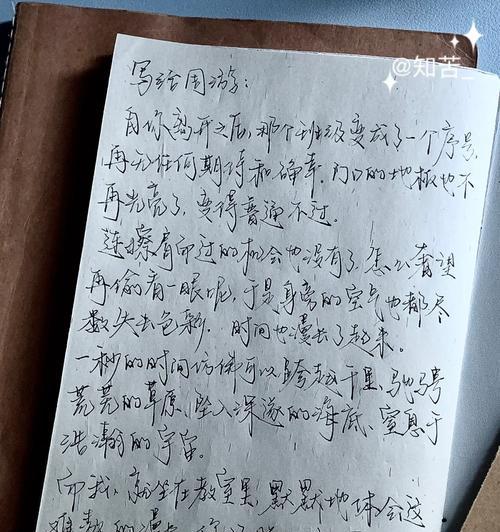 @知苦_
写给周游：
自你离开之后，那个班级变成了一个序号，
再无任何期待和确幸，门口的地板也不
再光亮了，变得普通不过。
连擦肩而过的机会也没有了，怎么奢望
再偷看一眼呢，于是身旁的空气也都尽
数失去色彩，时间也漫长了起来。
一秒的时间仿佛可以跨越千里，驰骋
荒芜的草原，坠入深邃的海底，窒息于
浩瀚的宇宙。
而我，就坐在教室里，默默地体会这
难熬的漫长